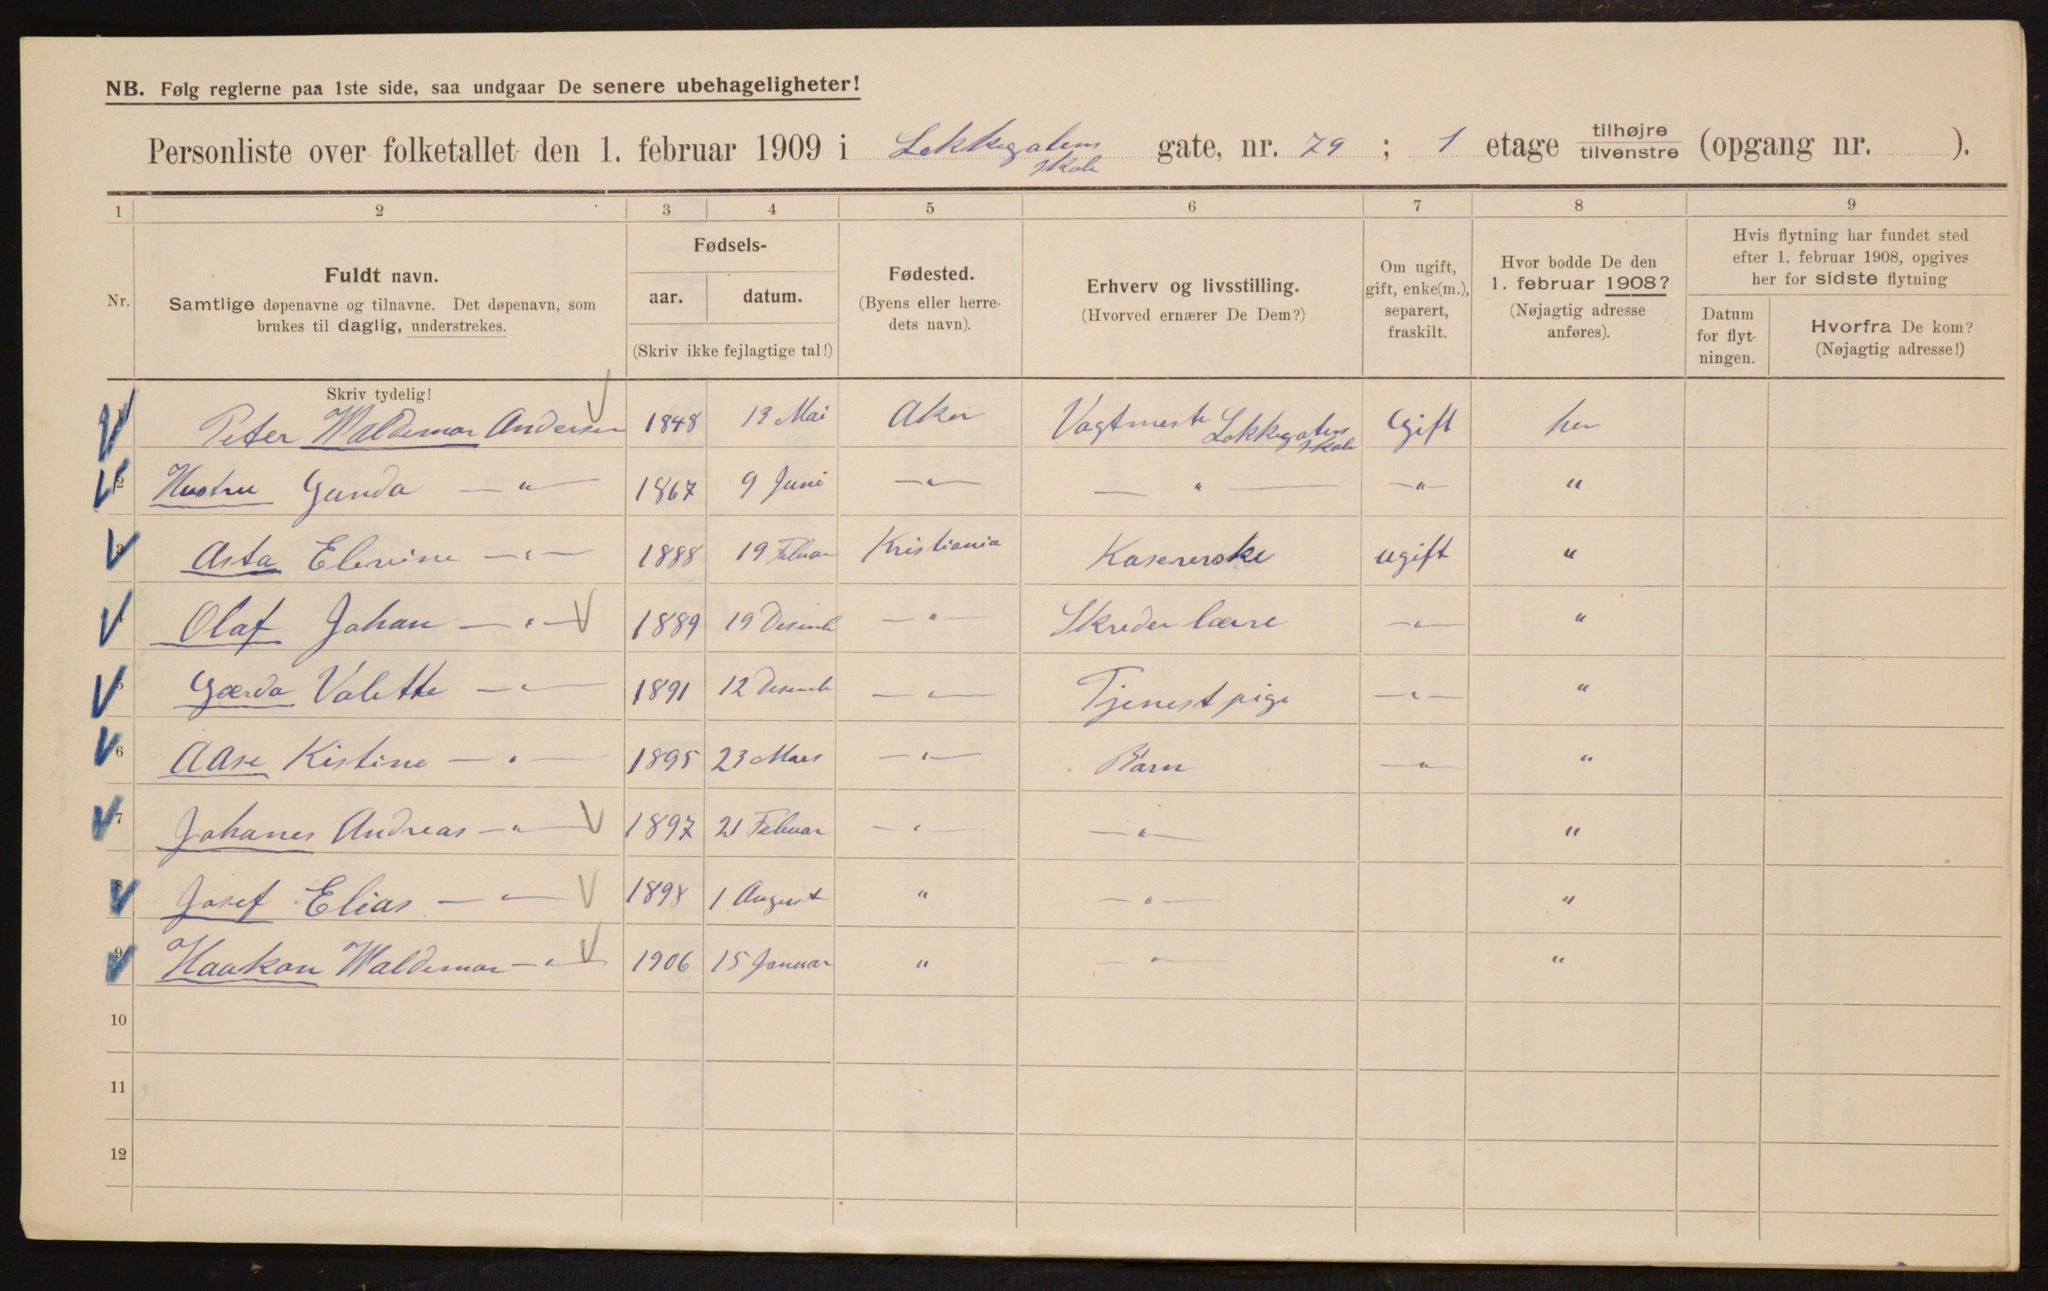 NB. Følg reglerne paa 1ste side, saa undgaar De senere ubehageligheter!
Personliste over folketallet den 1. februar 1909 i Lekkegatens skole gate, nr. 79 ; 1 etage tilhøjre tilvenstre (opgang nr. ).
1 2 3 4 5 6 7 8 9
Nr.
Fuldt navn.
Samtlige døpenavne og tilnavne. Det døpenavn, som
brukes til daglig, understrekes.
Skriv tydelig!
Fødsels-
aar. datum.
(Skriv ikke fejlagtige tal!)
Fødested.
(Byens eller herre-
dets navn).
Erhverv og livsstilling.
(Hvorved ernærer De Dem?)
Om ugift,
gift, enke(m.),
separert,
fraskilt.
Hvor bodde De den
1. februar 1908?
(Nøjagtig adresse
anføres).
Hvis flytning har fundet sted
efter 1. februar 1908, opgives
her for sidste flytning
Datum
for flyt-
ningen.
Hvorfra De kom?
(Nøjagtig adresse!)
Peter Waldemar Andersen 1848 13 Mai Aker Vagtmeste Lekkegatens skole Gift her
2 Hustru Gunda — " — 1867 9 Juni — " — — " — — " — "
3 Asta Elevine — " — 1888 19 Februar Kristiania Kasererske ugift "
Olaf Johan — " — 1889 19 Desemb — " — Skreder lærre — " — "
5 Gærda Valette — " — 1891 12 Desemb — " — Tjenestpige — " — "
6 Aase Kistine — " — 1895 23 Mars — " — Barn — " — "
7 Johanes Andreas — " — 1897 21 Februar — " — — " — "
8 Josef Elias — " — 1898 1 August " — " — "
9 Haakon Waldemar — " — 1906 15 Januar " — " — "
10
11
12